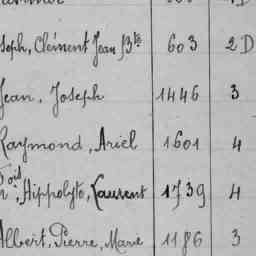 oseph, Clément Jean Bte 603 2 D
Jean, Joseph 1446 3
Raymond, Ariel 1601 4
Fois, Hippolyte, Laurent 1739 4
Albert, Pierre, Marie 1186 3